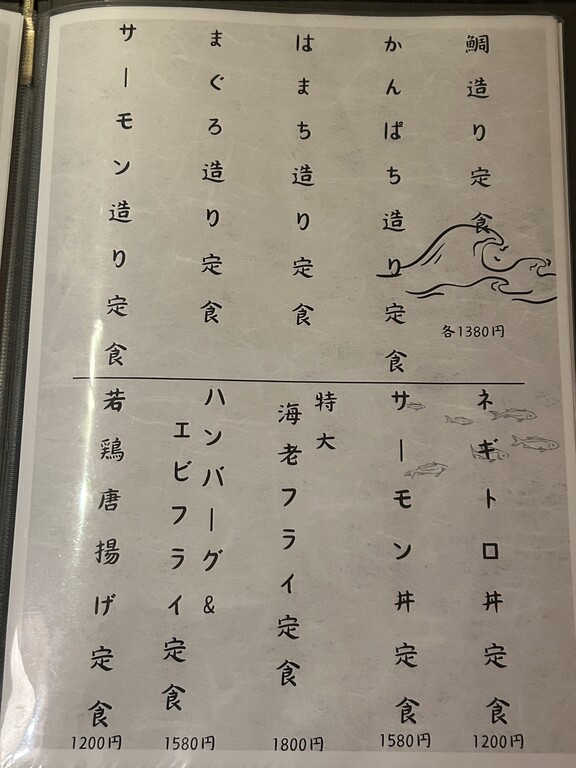 鯛造り定食
かんぱち造り定食
はまち造り定食
まぐろ造り定食
サーモン造り定食
各1380円
ネギトロ丼定食
1200円
サーモン丼定食
1580円
特大
海老フライ定食
1800円
ハンバーグ&
エビフライ定食
1580円
若鶏唐揚げ定食
1200円